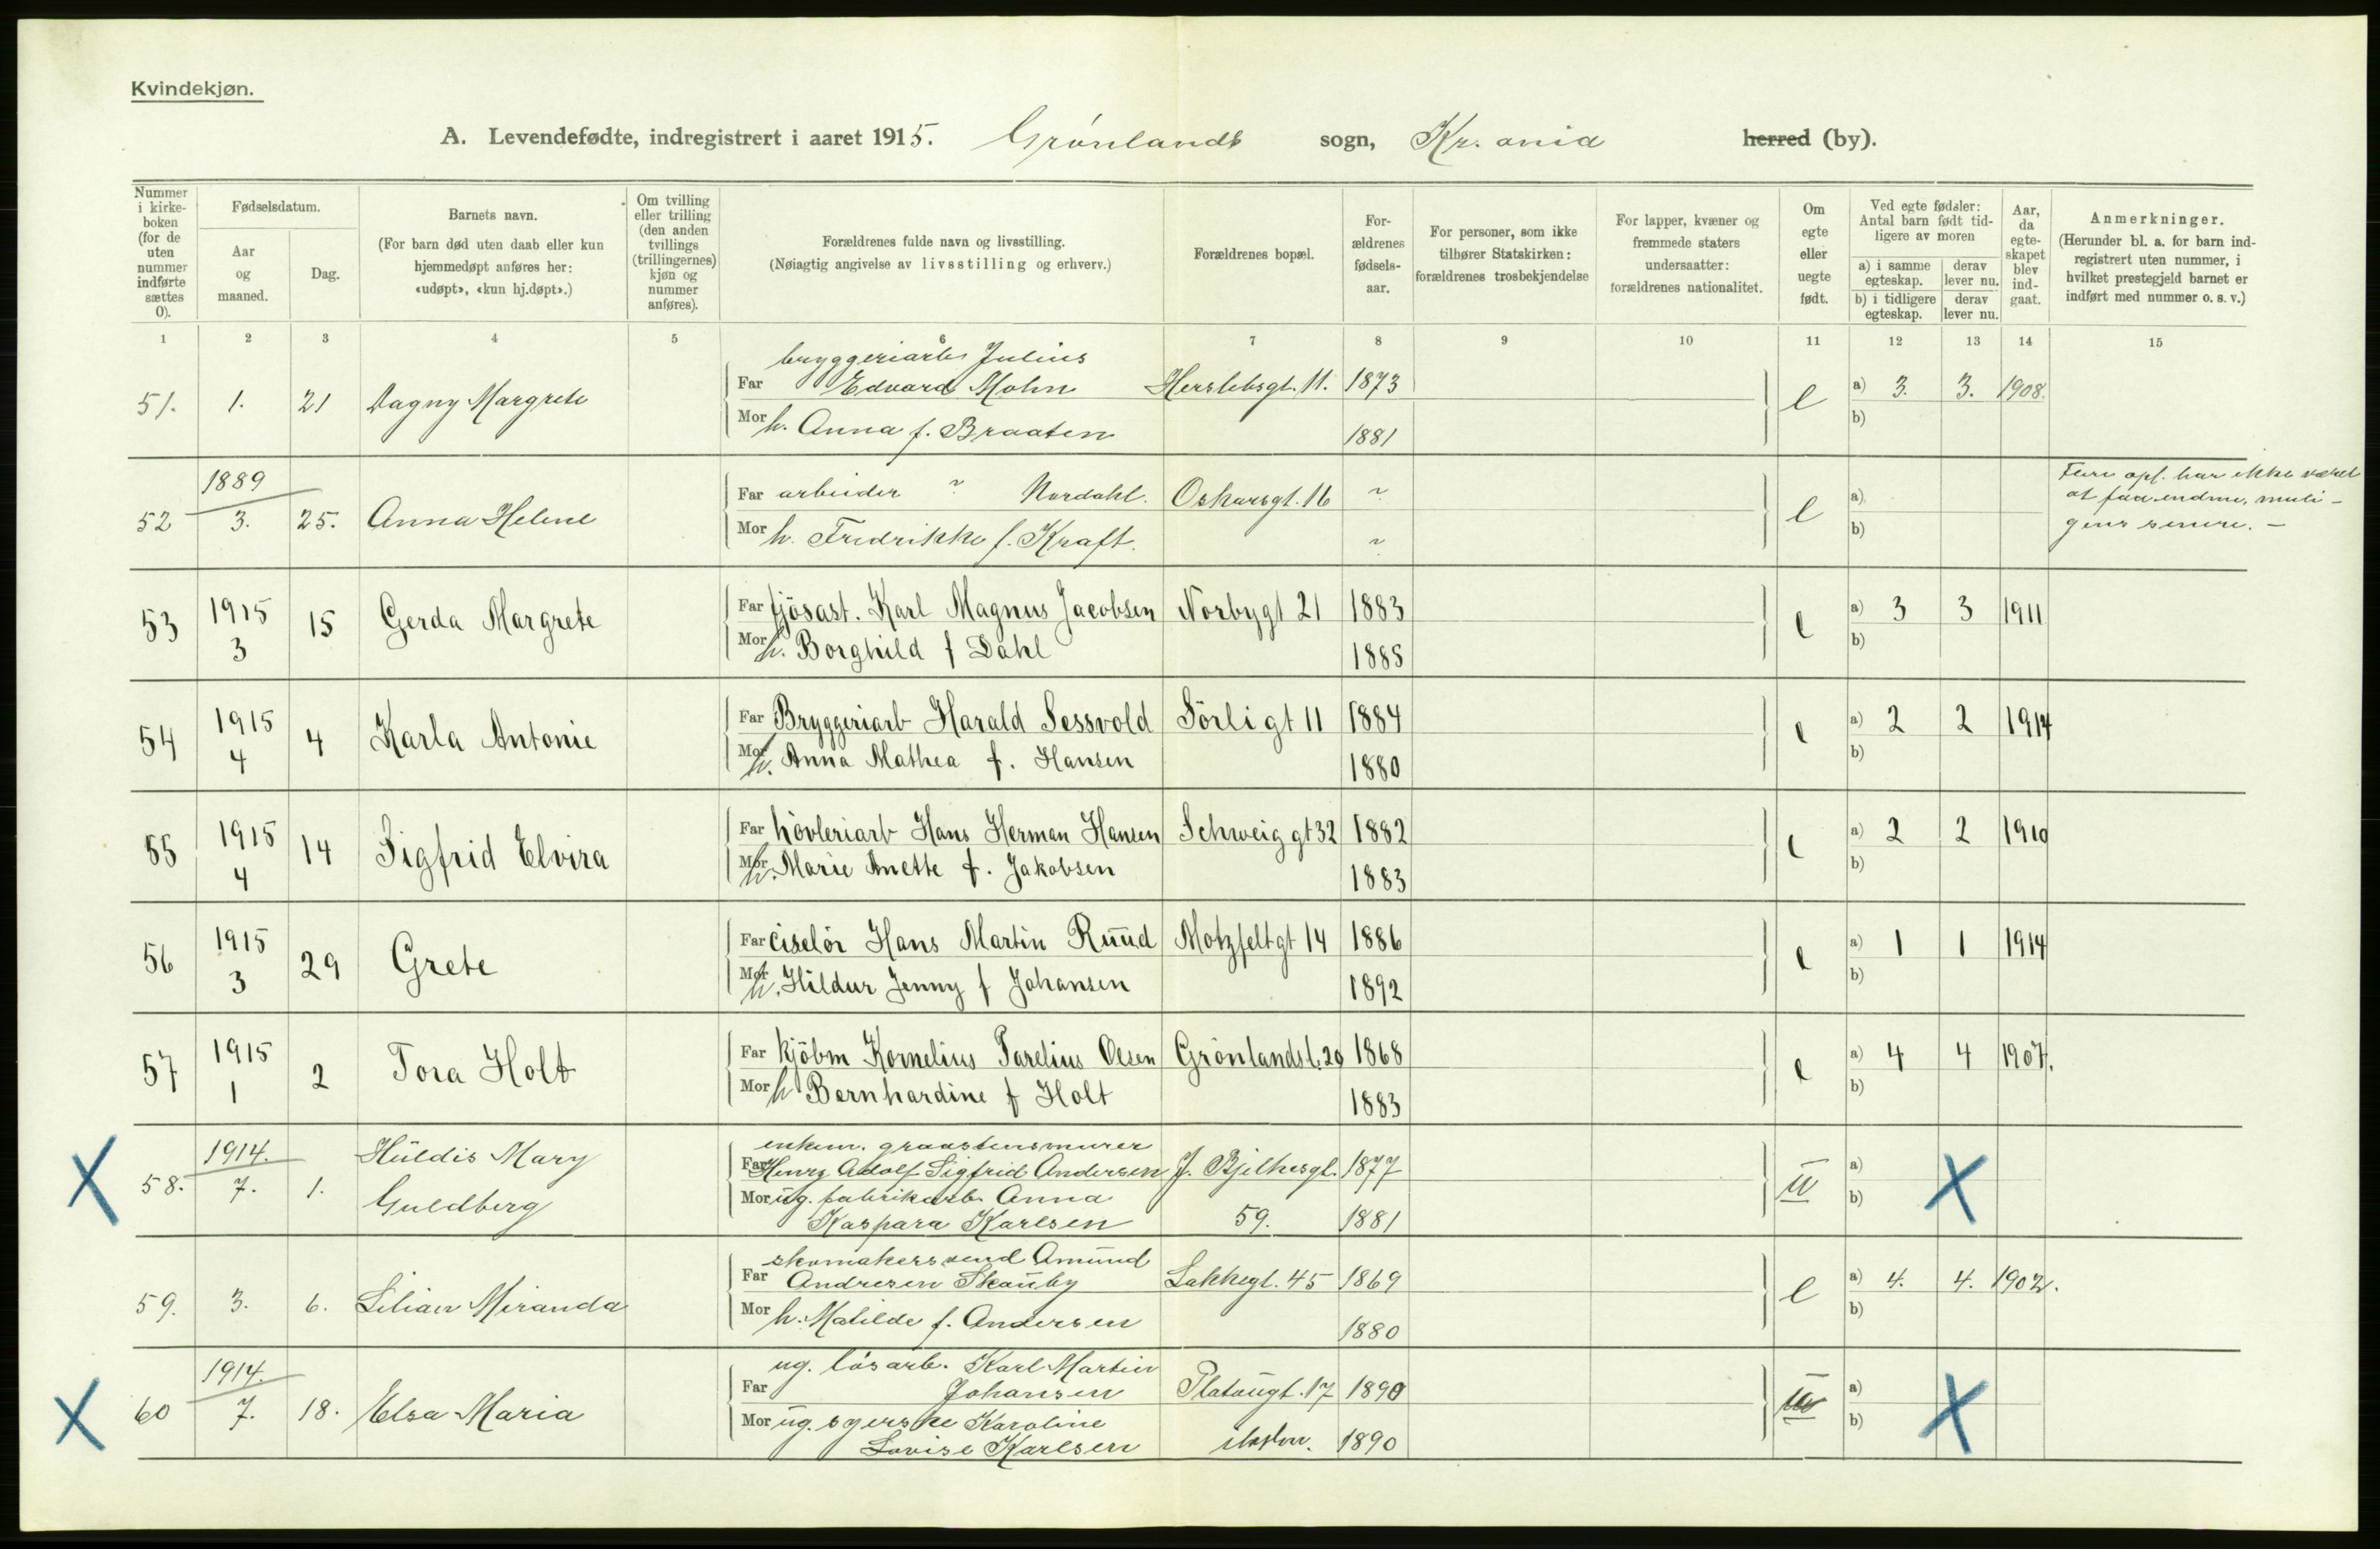 Kvindekjøn.
A. Levendefødte, indregistrert i aaret 1915. Grønlands sogn, Kr.ania herred (by).
Nummer i kirkeboken (for de uten nummer indførte sættes 0).
Fødselsdatum.
Aar og maaned.
Dag.
Barnets navn.
(For barn død uten daab eller kun hjemmedøpt anføres her: «udøpt», «kun hj.døpt».)
Om tvilling eller trilling (den anden tvillings (trillingernes) kjøn og nummer anføres).
Forældrenes fulde navn og livsstilling.
(Nøiagtig angivelse av livsstilling og erhverv.)
Forældrenes bopæl.
Forældrenes fødselsaar.
For personer, som ikke tilhører Statskirken: forældrenes trosbekjendelse
For lapper, kvæner og fremmede staters undersaatter: forældrenes nationalitet.
Om egte eller uegte født.
Ved egte fødsler: Antal barn født tidligere av moren
a) i samme egteskap. derav lever nu.
b) i tidligere egteskap. derav lever nu.
Aar, da egteskapet blev indgaat.
Anmerkninger.
(Herunder bl. a. for barn indregistrert uten nummer, i hvilket prestegjeld barnet er indført med nummer o. s. v.)
1 2 3 4 5 6 7 8 9 10 11 12 13 14 15
bryggeriarb Julius
51. 1. 21 Dagny Margrete Far Edvard Mohn Herslebsgt. 11. 1873 e a) 3. 3. 1908.
Mor h. Anna f. Braaten 1881 b)
1889
52 3. 25. Anna Helene Far arbeider ? Nordahl. Oskarsgt. 16 ? e a) Flere opl. har ikke været
at faa endnu, muli-
Mor h. Fredrikke f. Kraft. ? b) gens senere. –
53 1915 3 15 Gerda Margrete Far fjøsast. Karl Magnus Jacobsen Norbygt 21 1883 e a) 3 3 1911
Mor h. Borghild f Dahl 1885 b)
54 1915 4 4 Karla Antonie Far Bryggeriarb Harald Sessvold Sörligt 11 1884 e a) 2 2 1914
Mor h. Anna Mathea f. Hansen 1880 b)
55 1915 4 14 Sigfrid Elvira Far hövleriarb Hans Herman Hansen Schweiggt 32 1882 e a) 2 2 1910
Mor h. Marie Anette f. Jakobsen 1883 b)
56 1915 3 29 Grete Far ciselör Hans Martin Ruud Motzfeltgt 14 1886 e a) 1 1 1914
Mor h. Hildur Jenny f Johansen 1892 b)
57 1915 1 2 Tora Holt Far kjöbm Kornelius Parelius Olsen Grönlandsl. 29 1868 e a) 4 4 1907.
Mor h Bernhardine f Holt 1883 b)
1914. Huldis Mary enkem. graastensmurer
X 58. 7. 1. Guldberg Far Henry Adolf Sigfrid Andersen J. Bjelkesgt. 1877 u a) X
Mor ug. fabrikarb. Anna b)
Kaspara Karlsen 59. 1881
skomakersvend Amund
59. 3. 6. Lilian Miranda Far Andresen Skauby Lakkegt. 45 1869 e a) 4. 4. 1902.
Mor h. Matilde f. Andersen 1880 b)
1914. ug. løsarb. Karl Martin
X 60 7. 18. Elsa Maria Far Johansen Platougt. 17 1890 u a) X
Mor ug. syerske Karoline b)
Lovise Karlsen 1890